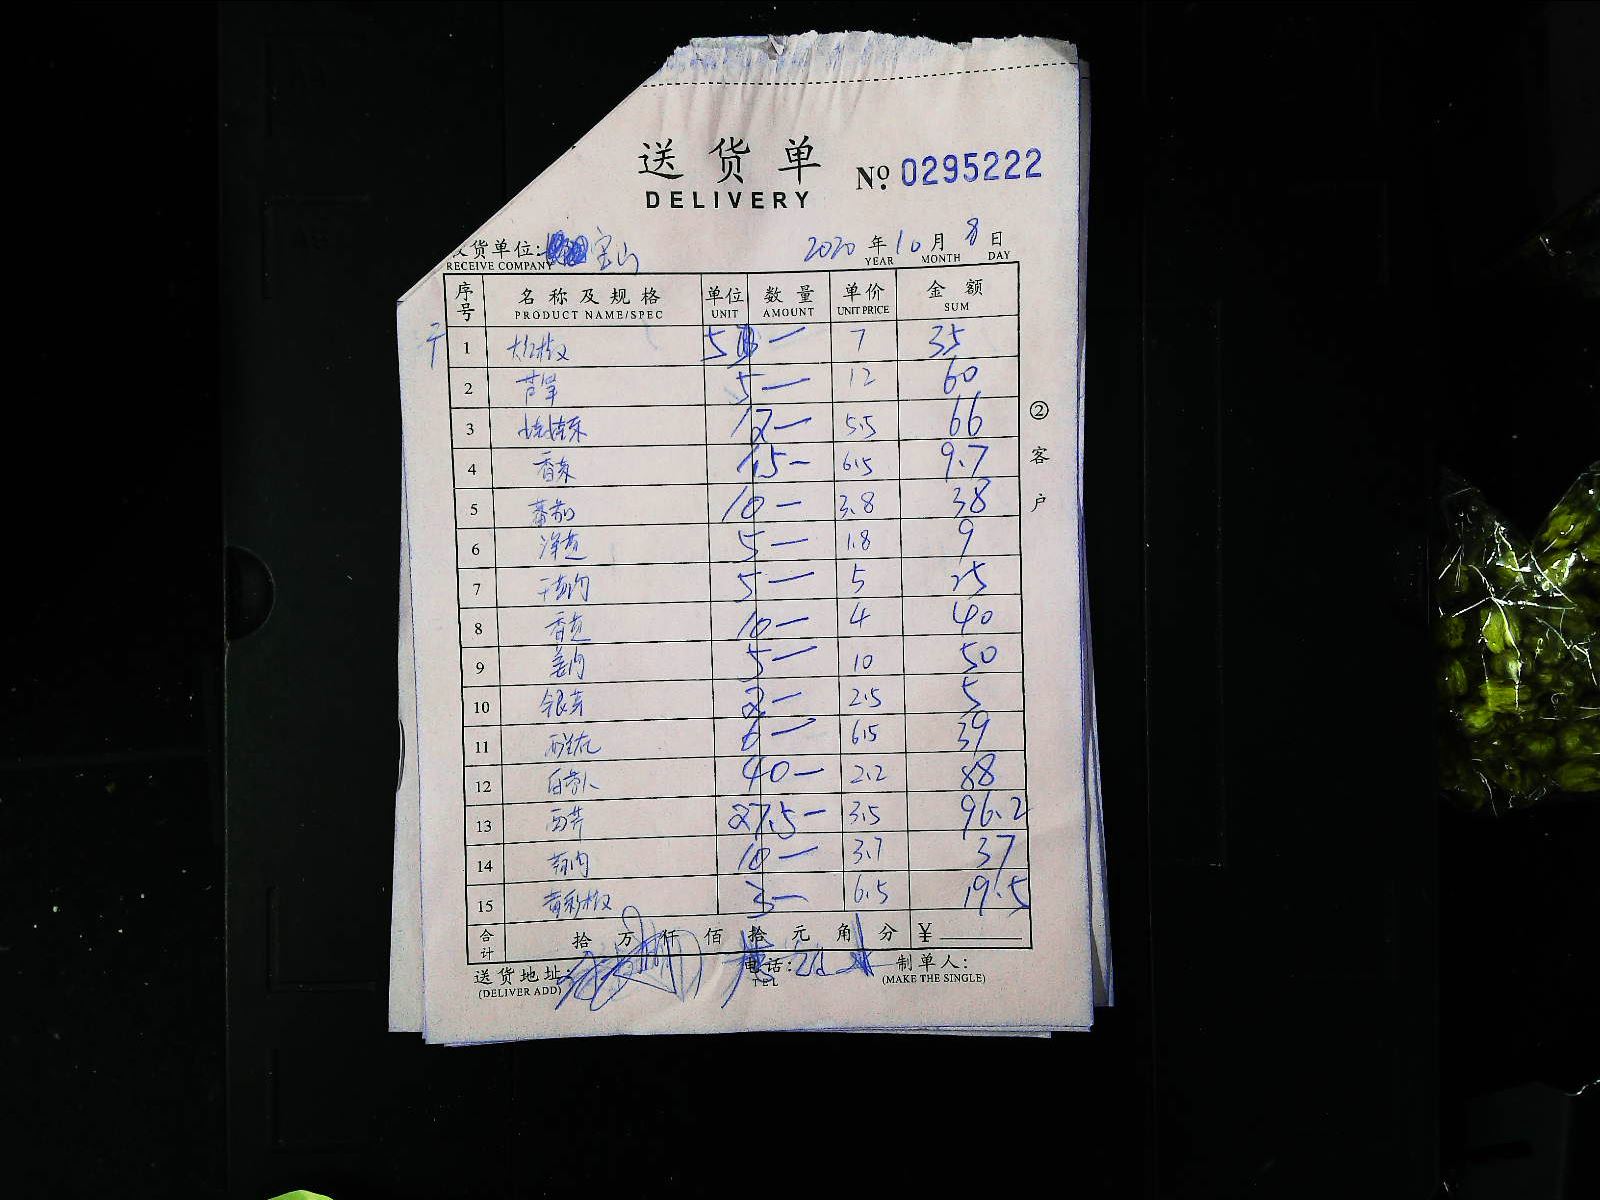 送货单
DELIVERY
No. 0295222
货单位: 宝山 2020 年 10 月 8 日
RECEIVE COMPANY YEAR MONTH DAY
序号 名称及规格 单位 数量 单价 金额
PRODUCT NAME/SPEC UNIT AMOUNT UNIT PRICE SUM
1 大红椒 5 一 7 35
2 5 一 12 60
3 12 一 5.5 66
4 香菜 1.5 一 6.5 9.7
5 蕃茄 10 一 3.8 38
6 洋芋 5 一 1.8 9
7 5 一 5 25
8 10 一 4 40
9 姜肉 5 一 10 50
10 银芽 2 一 2.5 5
11 西兰花 6 一 6.5 39
12 40 一 2.2 88
13 西芹 27.5 一 3.5 96.2
14 10 一 3.7 37
15 黄彩椒 3 一 6.5 19.5
合计 拾 万 仟 佰 拾 元 角 分 ¥
送货地址: 电话: 制单人:
(DELIVER ADD) TEL (MAKE THE SINGLE)
②客户